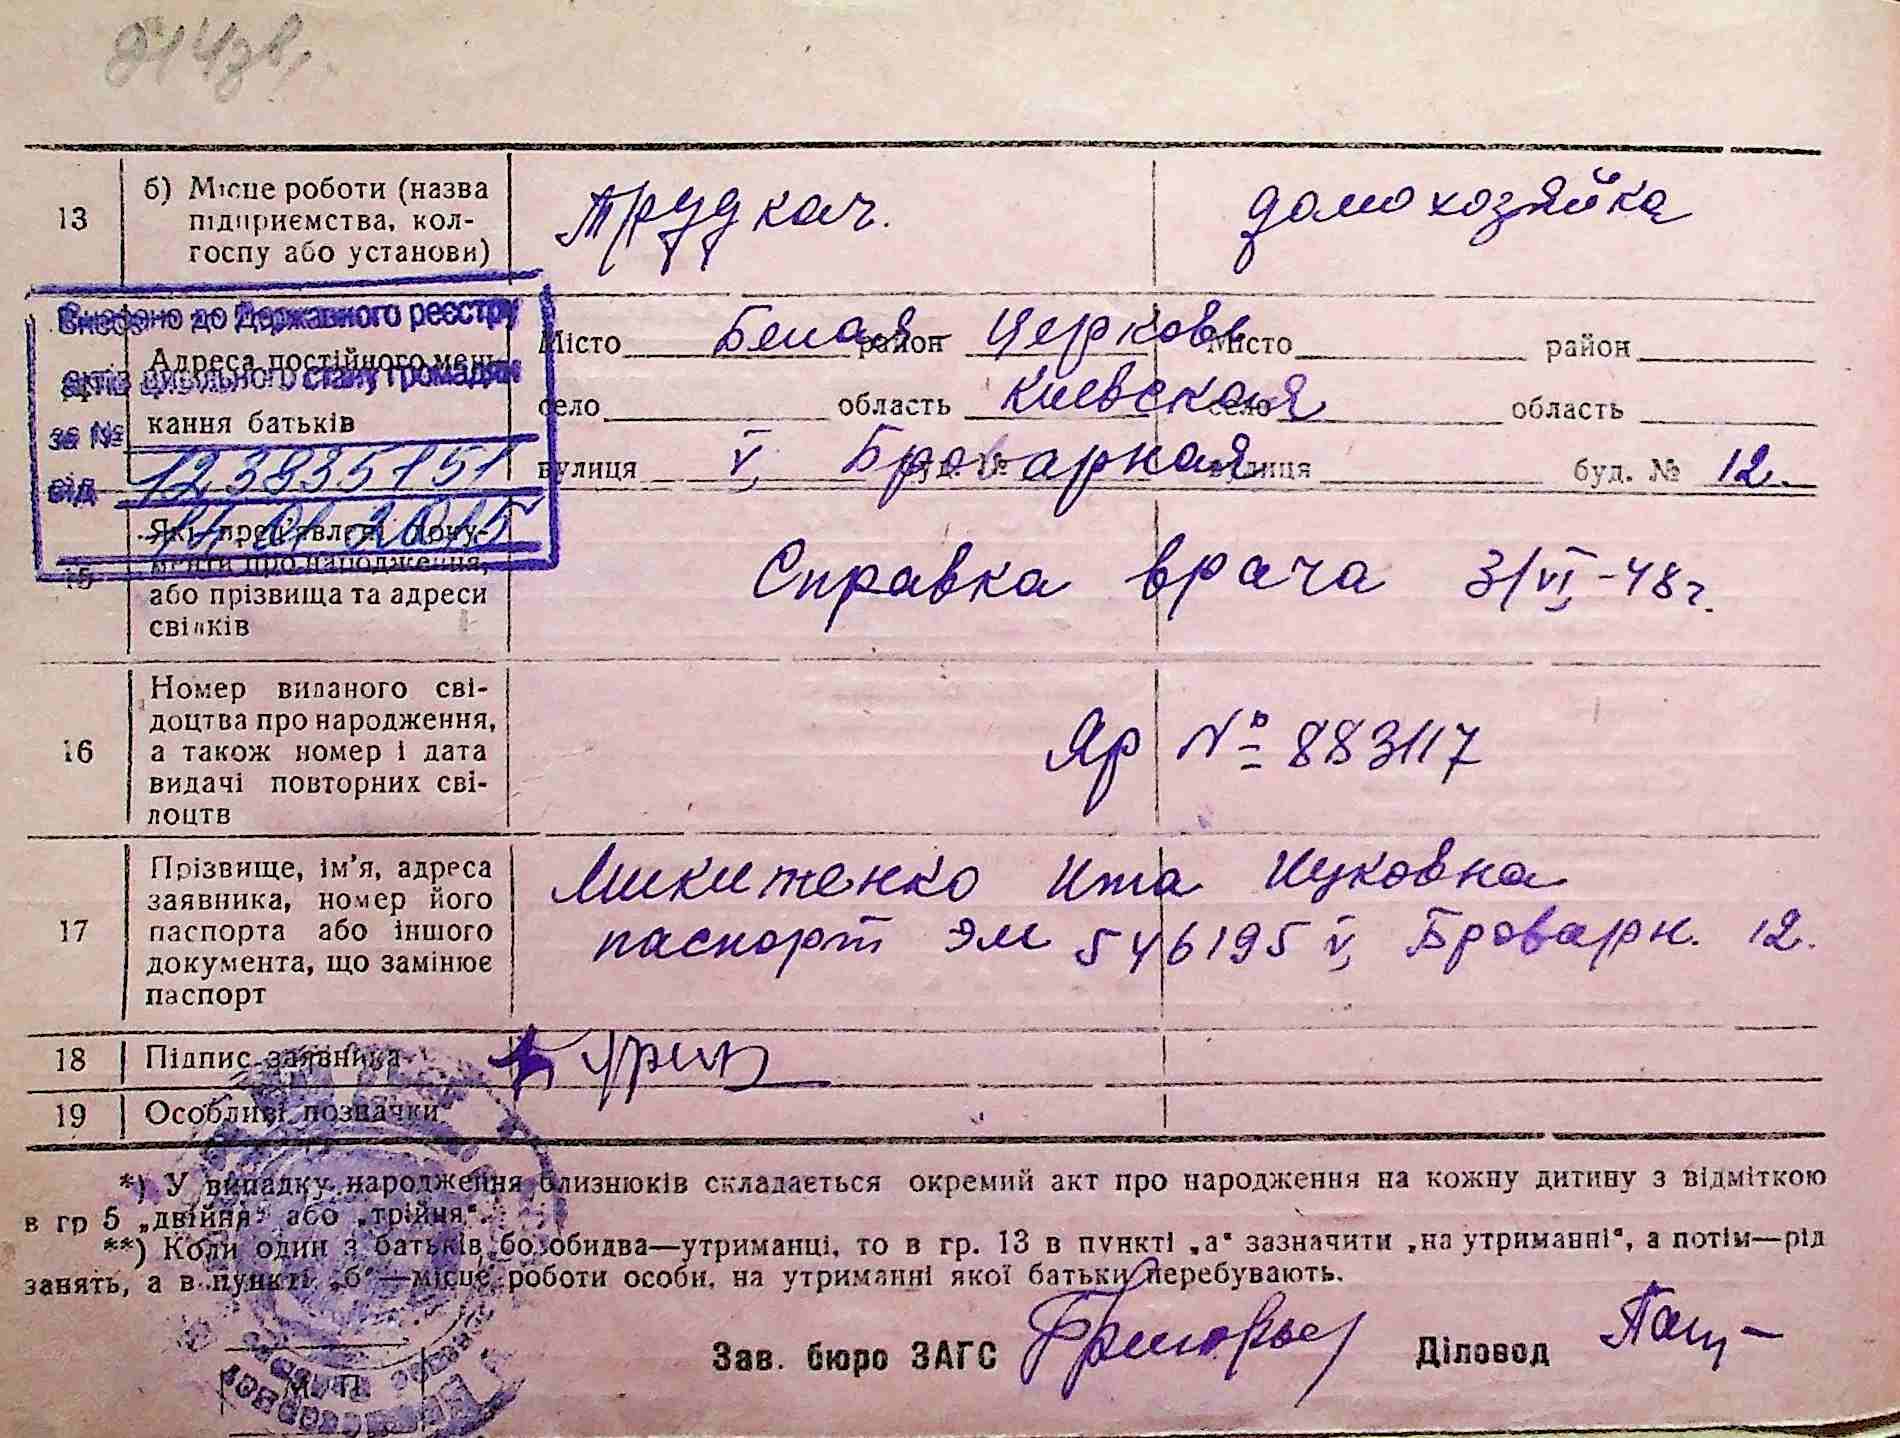 13
б) Місце роботи (назва
підприємства, кол-
госпу або установи)
домохозяйка
Внесено до Державного реєстру
актів цивільного стану громадян
за № 123835151
від 14.01.2015
Адреса постійного меш-
кання батьків
Місто Белая район Церковь Місто район
село область Киевская село область
вулиця V, Броварная буд. № вулиця буд. № 12.
15
Які пред'явлені доку-
менти про народження,
або прізвища та адреси
свідків
Справка врача 3/VI-48 г.
16
Номер виданого сві-
доцтва про народження,
а також номер і дата
видачі повторних сві-
доцтв
Яр № 883117
17
Прізвище, ім'я, адреса
заявника, номер його
паспорта або іншого
документа, що замінює
паспорт
Микитенко Ита Ицковна
паспорт ЭМ 546195 V, Броварн. 12.
18 Підпис заявника
19 Особливі позначки
*) У випадку народження близнюків складається окремий акт про народження на кожну дитину з відміткою
в гр 5 „двійня“ або „трійня“.
**) Коли один з батьків, бо обидва—утриманці, то в гр. 13 в пункті „а“ зазначити „на утриманні“, а потім—рід
занять, а в пункті „б“—місце роботи особи, на утриманні якої батьки перебувають.
Зав. бюро ЗАГС Діловод
М. П.